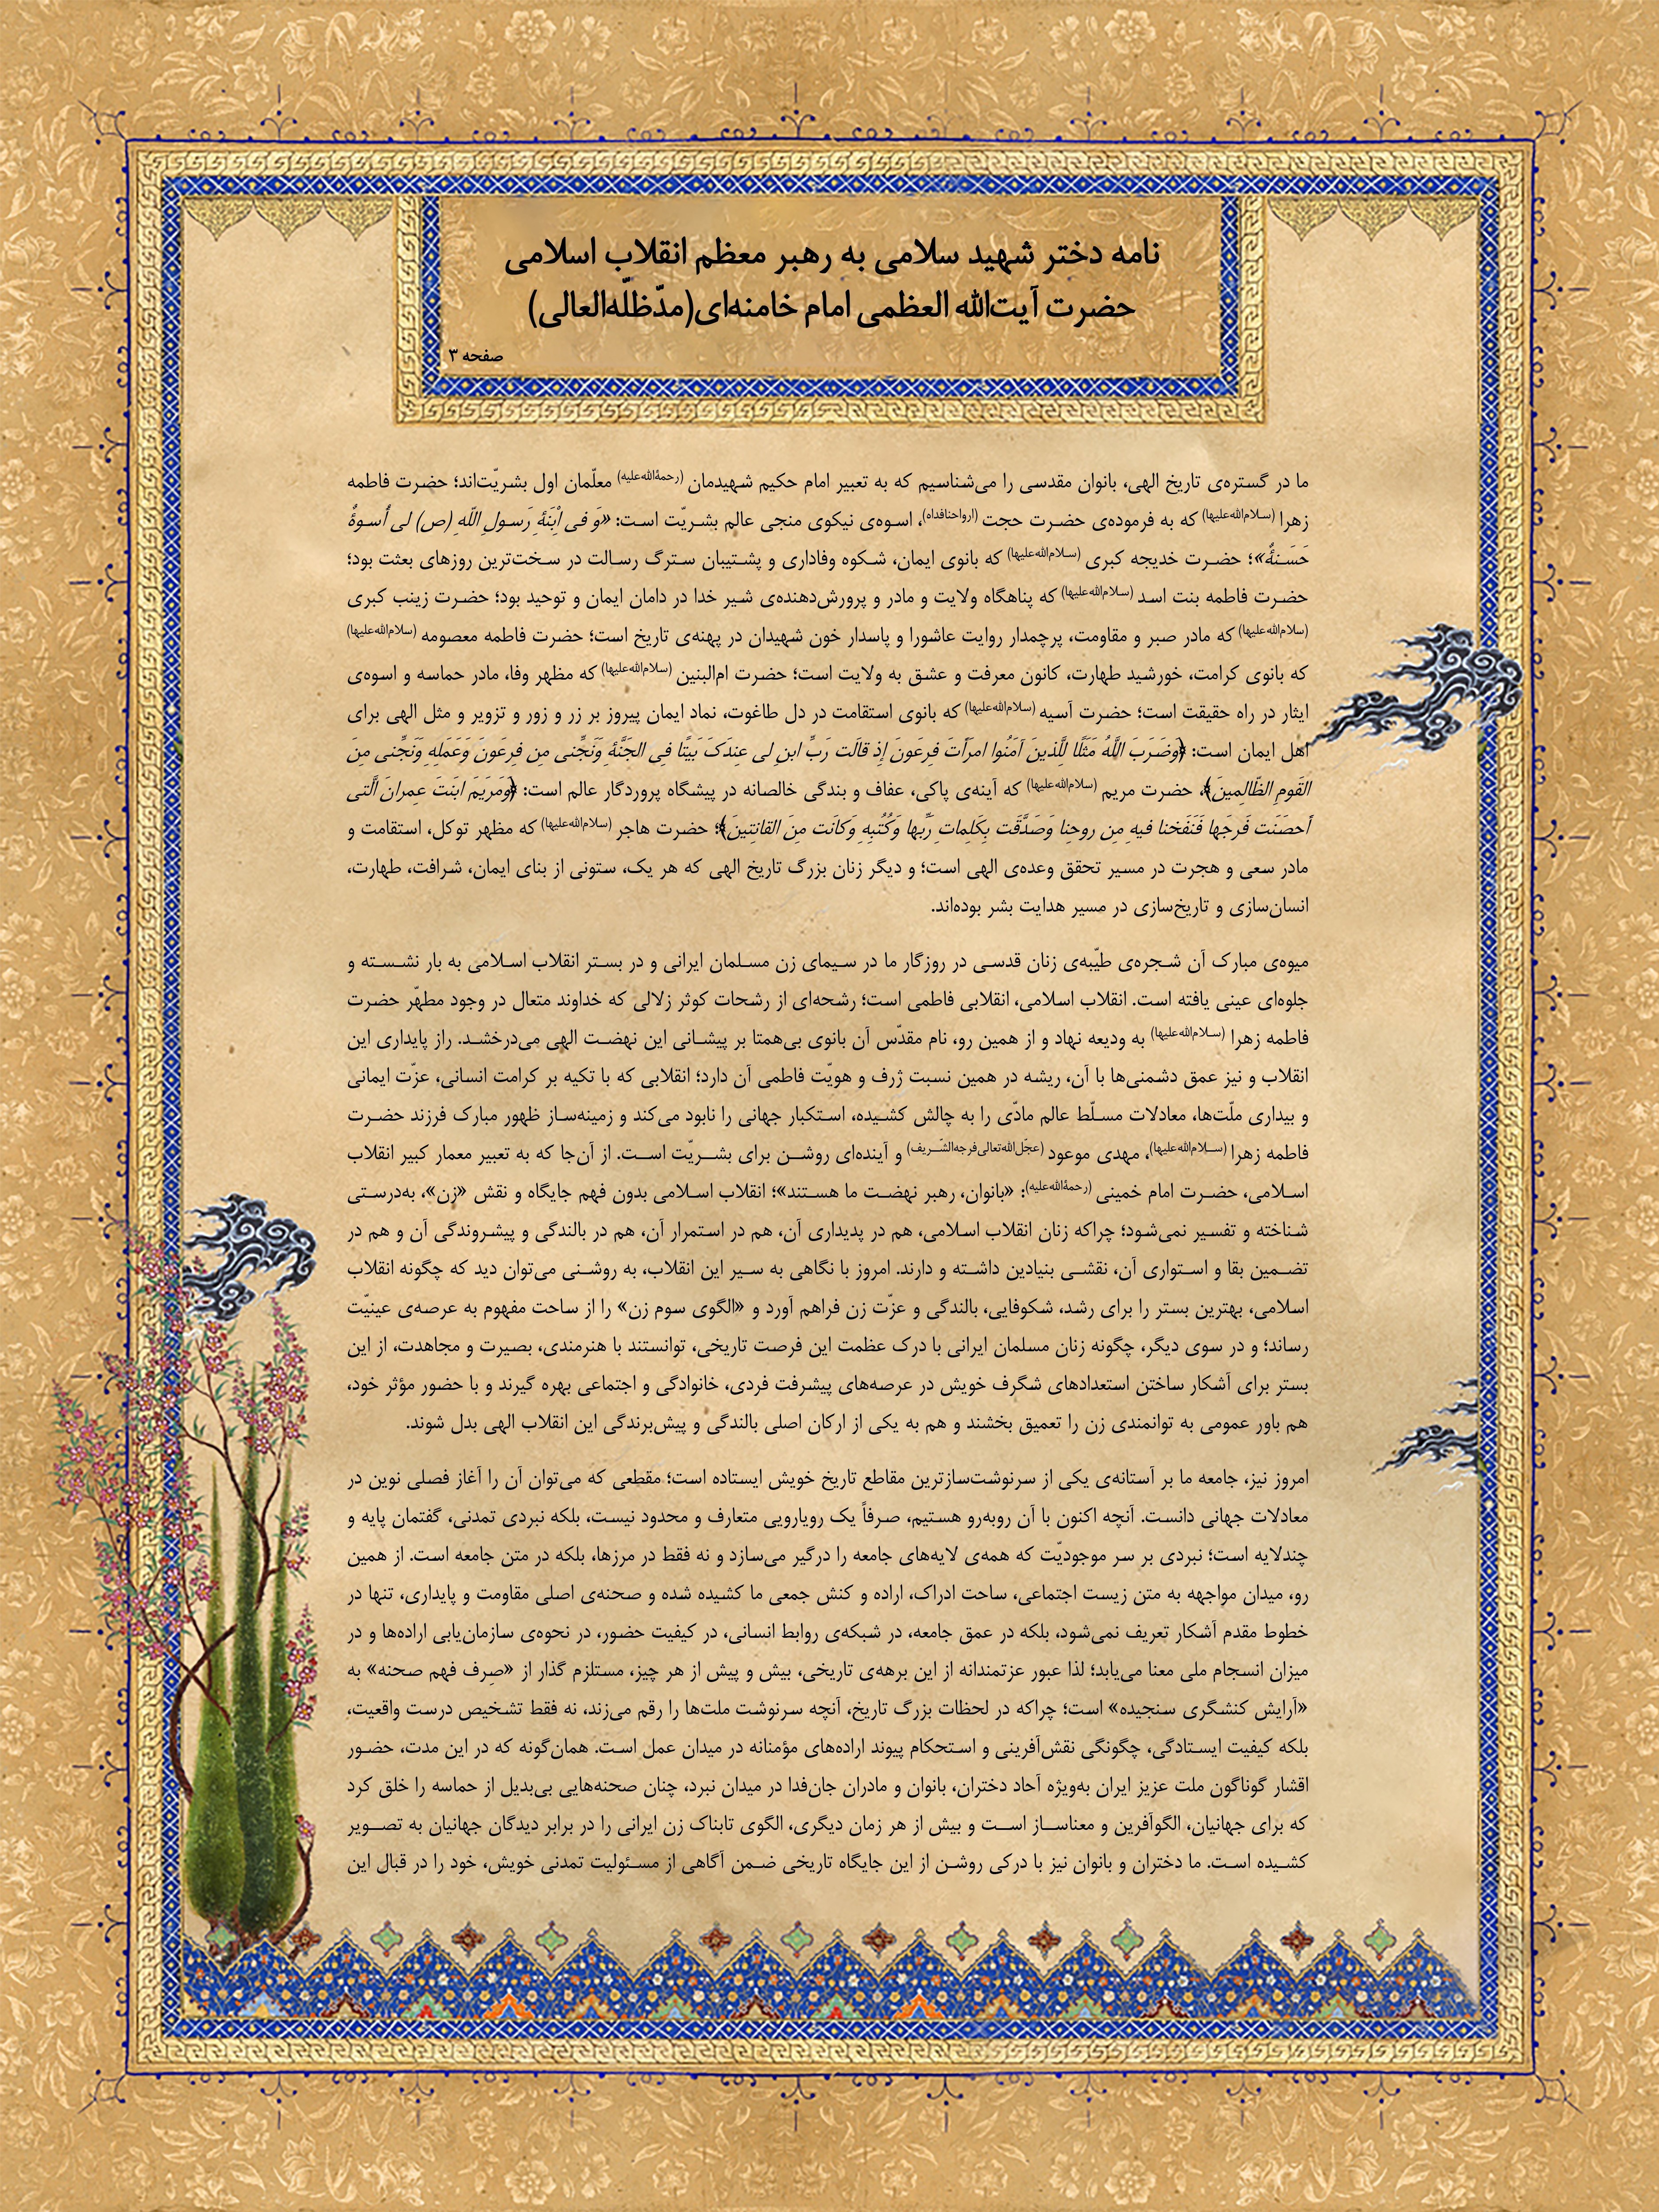 نامه دختر شهید سلامی به رهبر معظم انقلاب اسلامی
حضرت آیت‌الله العظمی امام خامنه‌ای(مدّظلّه‌العالی)
صفحه ۳
ما در گستره‌ی تاریخ الهی، بانوان مقدسی را می‌شناسیم که به تعبیر امام حکیم شهیدمان (رحمةالله‌علیه) معلّمان اول بشریّت‌اند؛ حضرت فاطمه
زهرا (سلام‌الله‌علیها) که به فرموده‌ی حضرت حجت (ارواحنافداه)، اسوه‌ی نیکوی منجی عالم بشریّت است: «وَ فی اِبْنَةِ رَسولِ اللّهِ (ص) لی أُسوةٌ
حَسَنةٌ»؛ حضرت خدیجه کبری (سلام‌الله‌علیها) که بانوی ایمان، شکوه وفاداری و پشتیبان سترگ رسالت در سخت‌ترین روزهای بعثت بود؛
حضرت فاطمه بنت اسد (سلام‌الله‌علیها) که پناهگاه ولایت و مادر و پرورش‌دهنده‌ی شیر خدا در دامان ایمان و توحید بود؛ حضرت زینب کبری
(سلام‌الله‌علیها) که مادر صبر و مقاومت، پرچمدار روایت عاشورا و پاسدار خون شهیدان در پهنه‌ی تاریخ است؛ حضرت فاطمه معصومه (سلام‌الله‌علیها)
که بانوی کرامت، خورشید طهارت، کانون معرفت و عشق به ولایت است؛ حضرت ام‌البنین (سلام‌الله‌علیها) که مظهر وفا، مادر حماسه و اسوه‌ی
ایثار در راه حقیقت است؛ حضرت آسیه (سلام‌الله‌علیها) که بانوی استقامت در دل طاغوت، نماد ایمان پیروز بر زر و زور و تزویر و مثل الهی برای
اهل ایمان است: ﴿وَضَرَبَ اللَّهُ مَثَلًا لِلَّذینَ آمَنُوا امرَأَتَ فِرعَونَ إِذ قالَت رَبِّ ابنِ لی عِندَکَ بَیتًا فِی الجَنَّةِ وَنَجِّنی مِن فِرعَونَ وَعَمَلِهِ وَنَجِّنی مِنَ
القَومِ الظّالِمینَ﴾، حضرت مریم (سلام‌الله‌علیها) که آینه‌ی پاکی، عفاف و بندگی خالصانه در پیشگاه پروردگار عالم است: ﴿وَمَریَمَ ابنَتَ عِمرانَ الَّتی
أَحصَنَت فَرجَها فَنَفَخنا فیهِ مِن روحِنا وَصَدَّقَت بِکَلِماتِ رَبِّها وَکُتُبِهِ وَکانَت مِنَ القانِتینَ﴾؛ حضرت هاجر (سلام‌الله‌علیها) که مظهر توکل، استقامت و
مادر سعی و هجرت در مسیر تحقق وعده‌ی الهی است؛ و دیگر زنان بزرگ تاریخ الهی که هر یک، ستونی از بنای ایمان، شرافت، طهارت،
انسان‌سازی و تاریخ‌سازی در مسیر هدایت بشر بوده‌اند.
میوه‌ی مبارک آن شجره‌ی طیّبه‌ی زنان قدسی در روزگار ما در سیمای زن مسلمان ایرانی و در بستر انقلاب اسلامی به بار نشسته و
جلوه‌ای عینی یافته است. انقلاب اسلامی، انقلابی فاطمی است؛ رشحه‌ای از رشحات کوثر زلالی که خداوند متعال در وجود مطهّر حضرت
فاطمه زهرا (سلام‌الله‌علیها) به ودیعه نهاد و از همین رو، نام مقدّس آن بانوی بی‌همتا بر پیشانی این نهضت الهی می‌درخشد. راز پایداری این
انقلاب و نیز عمق دشمنی‌ها با آن، ریشه در همین نسبت ژرف و هویّت فاطمی آن دارد؛ انقلابی که با تکیه بر کرامت انسانی، عزّت ایمانی
و بیداری ملّت‌ها، معادلات مسلّط عالم مادّی را به چالش کشیده، استکبار جهانی را نابود می‌کند و زمینه‌ساز ظهور مبارک فرزند حضرت
فاطمه زهرا (سلام‌الله‌علیها)، مهدی موعود (عجّل‌الله‌تعالی‌فرجه‌الشّریف) و آینده‌ای روشن برای بشریّت است. از آن‌جا که به تعبیر معمار کبیر انقلاب
اسلامی، حضرت امام خمینی (رحمةالله‌علیه): «بانوان، رهبر نهضت ما هستند»؛ انقلاب اسلامی بدون فهم جایگاه و نقش «زن»، به‌درستی
شناخته و تفسیر نمی‌شود؛ چراکه زنان انقلاب اسلامی، هم در پدیداری آن، هم در استمرار آن، هم در بالندگی و پیشروندگی آن و هم در
تضمین بقا و استواری آن، نقشی بنیادین داشته و دارند. امروز با نگاهی به سیر این انقلاب، به روشنی می‌توان دید که چگونه انقلاب
اسلامی، بهترین بستر را برای رشد، شکوفایی، بالندگی و عزّت زن فراهم آورد و «الگوی سوم زن» را از ساحت مفهوم به عرصه‌ی عینیّت
رساند؛ و در سوی دیگر، چگونه زنان مسلمان ایرانی با درک عظمت این فرصت تاریخی، توانستند با هنرمندی، بصیرت و مجاهدت، از این
بستر برای آشکار ساختن استعدادهای شگرف خویش در عرصه‌های پیشرفت فردی، خانوادگی و اجتماعی بهره گیرند و با حضور مؤثر خود،
هم باور عمومی به توانمندی زن را تعمیق بخشند و هم به یکی از ارکان اصلی بالندگی و پیش‌برندگی این انقلاب الهی بدل شوند.
امروز نیز، جامعه ما بر آستانه‌ی یکی از سرنوشت‌سازترین مقاطع تاریخ خویش ایستاده است؛ مقطعی که می‌توان آن را آغاز فصلی نوین در
معادلات جهانی دانست. آنچه اکنون با آن روبه‌رو هستیم، صرفاً یک رویارویی متعارف و محدود نیست، بلکه نبردی تمدنی، گفتمان پایه و
چندلایه است؛ نبردی بر سر موجودیّت که همه‌ی لایه‌های جامعه را درگیر می‌سازد و نه فقط در مرزها، بلکه در متن جامعه است. از همین
رو، میدان مواجهه به متن زیست اجتماعی، ساحت ادراک، اراده و کنش جمعی ما کشیده شده و صحنه‌ی اصلی مقاومت و پایداری، تنها در
خطوط مقدم آشکار تعریف نمی‌شود، بلکه در عمق جامعه، در شبکه‌ی روابط انسانی، در کیفیت حضور، در نحوه‌ی سازمان‌یابی اراده‌ها و در
میزان انسجام ملی معنا می‌یابد؛ لذا عبور عزتمندانه از این برهه‌ی تاریخی، بیش و پیش از هر چیز، مستلزم گذار از «صِرف فهم صحنه» به
«آرایش کنشگری سنجیده» است؛ چراکه در لحظات بزرگ تاریخ، آنچه سرنوشت ملت‌ها را رقم می‌زند، نه فقط تشخیص درست واقعیت،
بلکه کیفیت ایستادگی، چگونگی نقش‌آفرینی و استحکام پیوند اراده‌های مؤمنانه در میدان عمل است. همان‌گونه که در این مدت، حضور
اقشار گوناگون ملت عزیز ایران به‌ویژه آحاد دختران، بانوان و مادران جان‌فدا در میدان نبرد، چنان صحنه‌هایی بی‌بدیل از حماسه را خلق کرد
که برای جهانیان، الگوآفرین و معناساز است و بیش از هر زمان دیگری، الگوی تابناک زن ایرانی را در برابر دیدگان جهانیان به تصویر
کشیده است. ما دختران و بانوان نیز با درکی روشن از این جایگاه تاریخی ضمن آگاهی از مسئولیت تمدنی خویش، خود را در قبال این